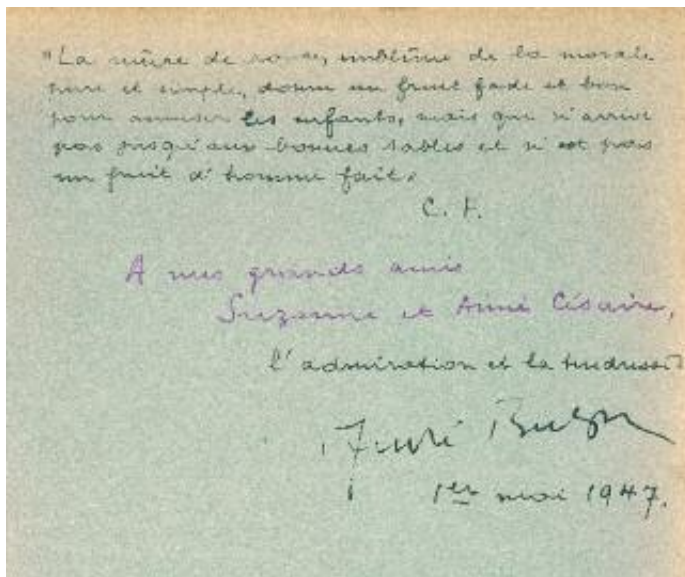 "La mûre de ronce, emblême de la morale
pure et simple, donne un fruit fade et bon
pour amuser les enfants, mais qui n'arrive
pas jusqu'aux bonnes tables et n'est pas
un fruit d'homme fait."
C. F.
A mes grands amis
Suzanne et Aimé Césaire,
l'admiration et la tendresse
André Breton
1er mai 1947.